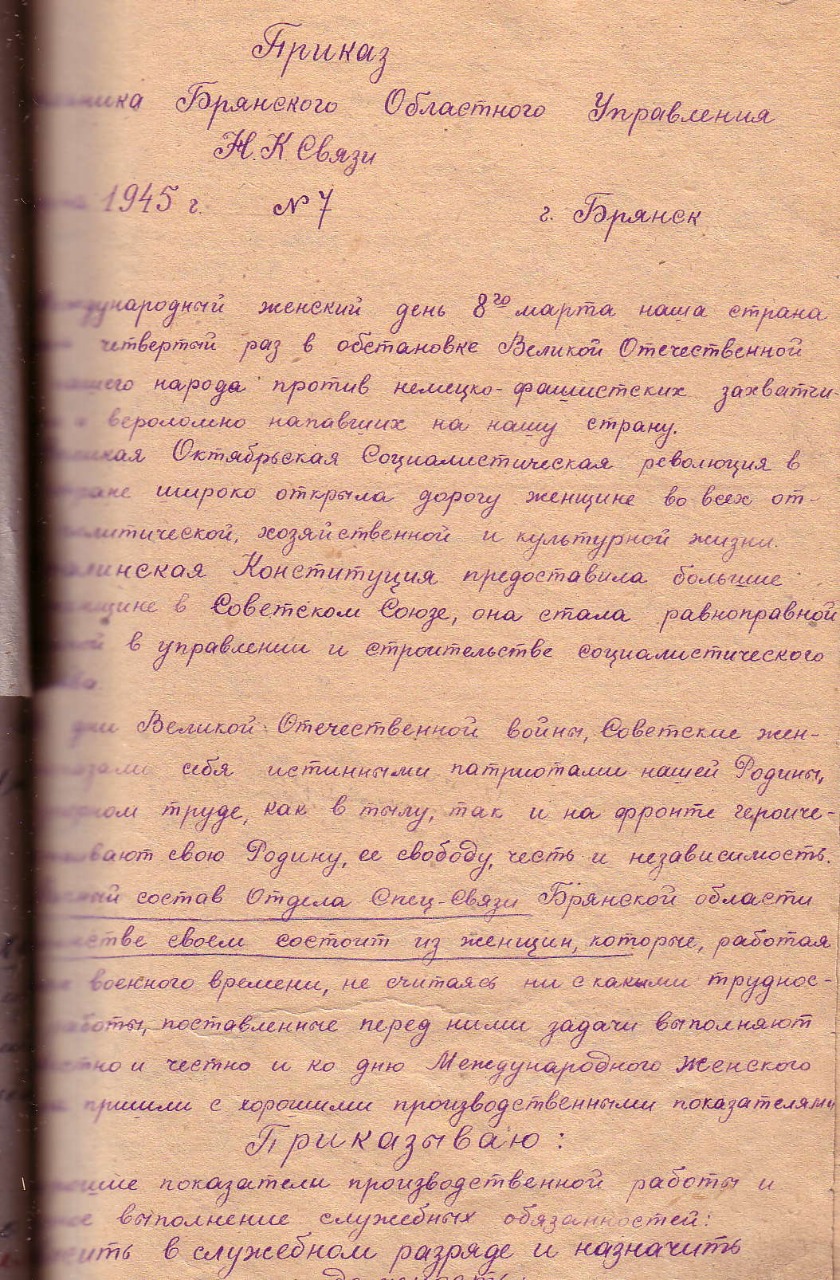 Приказ
Брянского Областного Управления
Н.К Связи
1945 г. № 7 г. Брянск
Международный женский день 8го марта наша страна
четвертый раз в обстановке Великой Отечественной
нашего народа против немецко-фашистских захватчи-
вероломно напавших на нашу страну.
Великая Октябрьская Социалистическая революция в
стране широко открыла дорогу женщине во всех от-
политической, хозяйственной и культурной жизни.
Сталинская Конституция предоставила большие
женщине в Советском Союзе, она стала равноправной
в управлении и строительстве социалистического
дни Великой Отечественной войны, Советские жен-
показали себя истинными патриотами нашей Родины,
труде, как в тылу, так и на фронте героиче-
свою Родину, ее свободу, честь и независимость.
состав Отдела Спец-Связи Брянской области
своем состоит из женщин, которые, работая
военного времени, не считаясь ни с какими труднос-
работы, поставленные перед ними задачи выполняют
и честно и ко дню Международного Женского
пришли с хорошими производственными показателями
Приказываю:
показатели производственной работы и
выполнение служебных обязанностей:
в служебном разряде и назначить